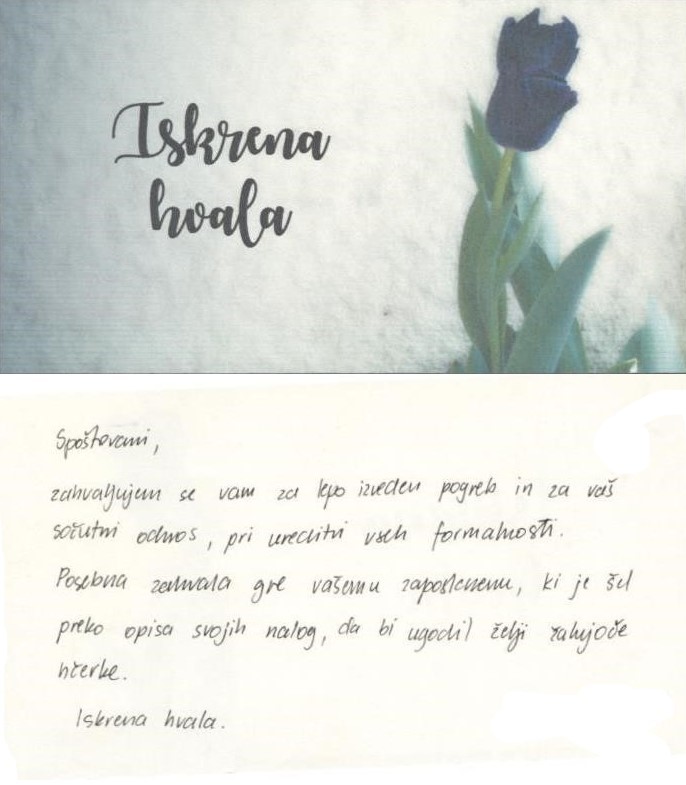 Iskrena
hvala
Spoštovani,
zahvaljujem se vam za lepo izveden pogreb in za vaš
sočutni odnos, pri ureditvi vseh formalnosti.
Posebna zahvala gre vašemu zaposlenemu, ki je šel
preko opisa svojih nalog, da bi ugodil želji žalujoče
hčerke.
Iskrena hvala.